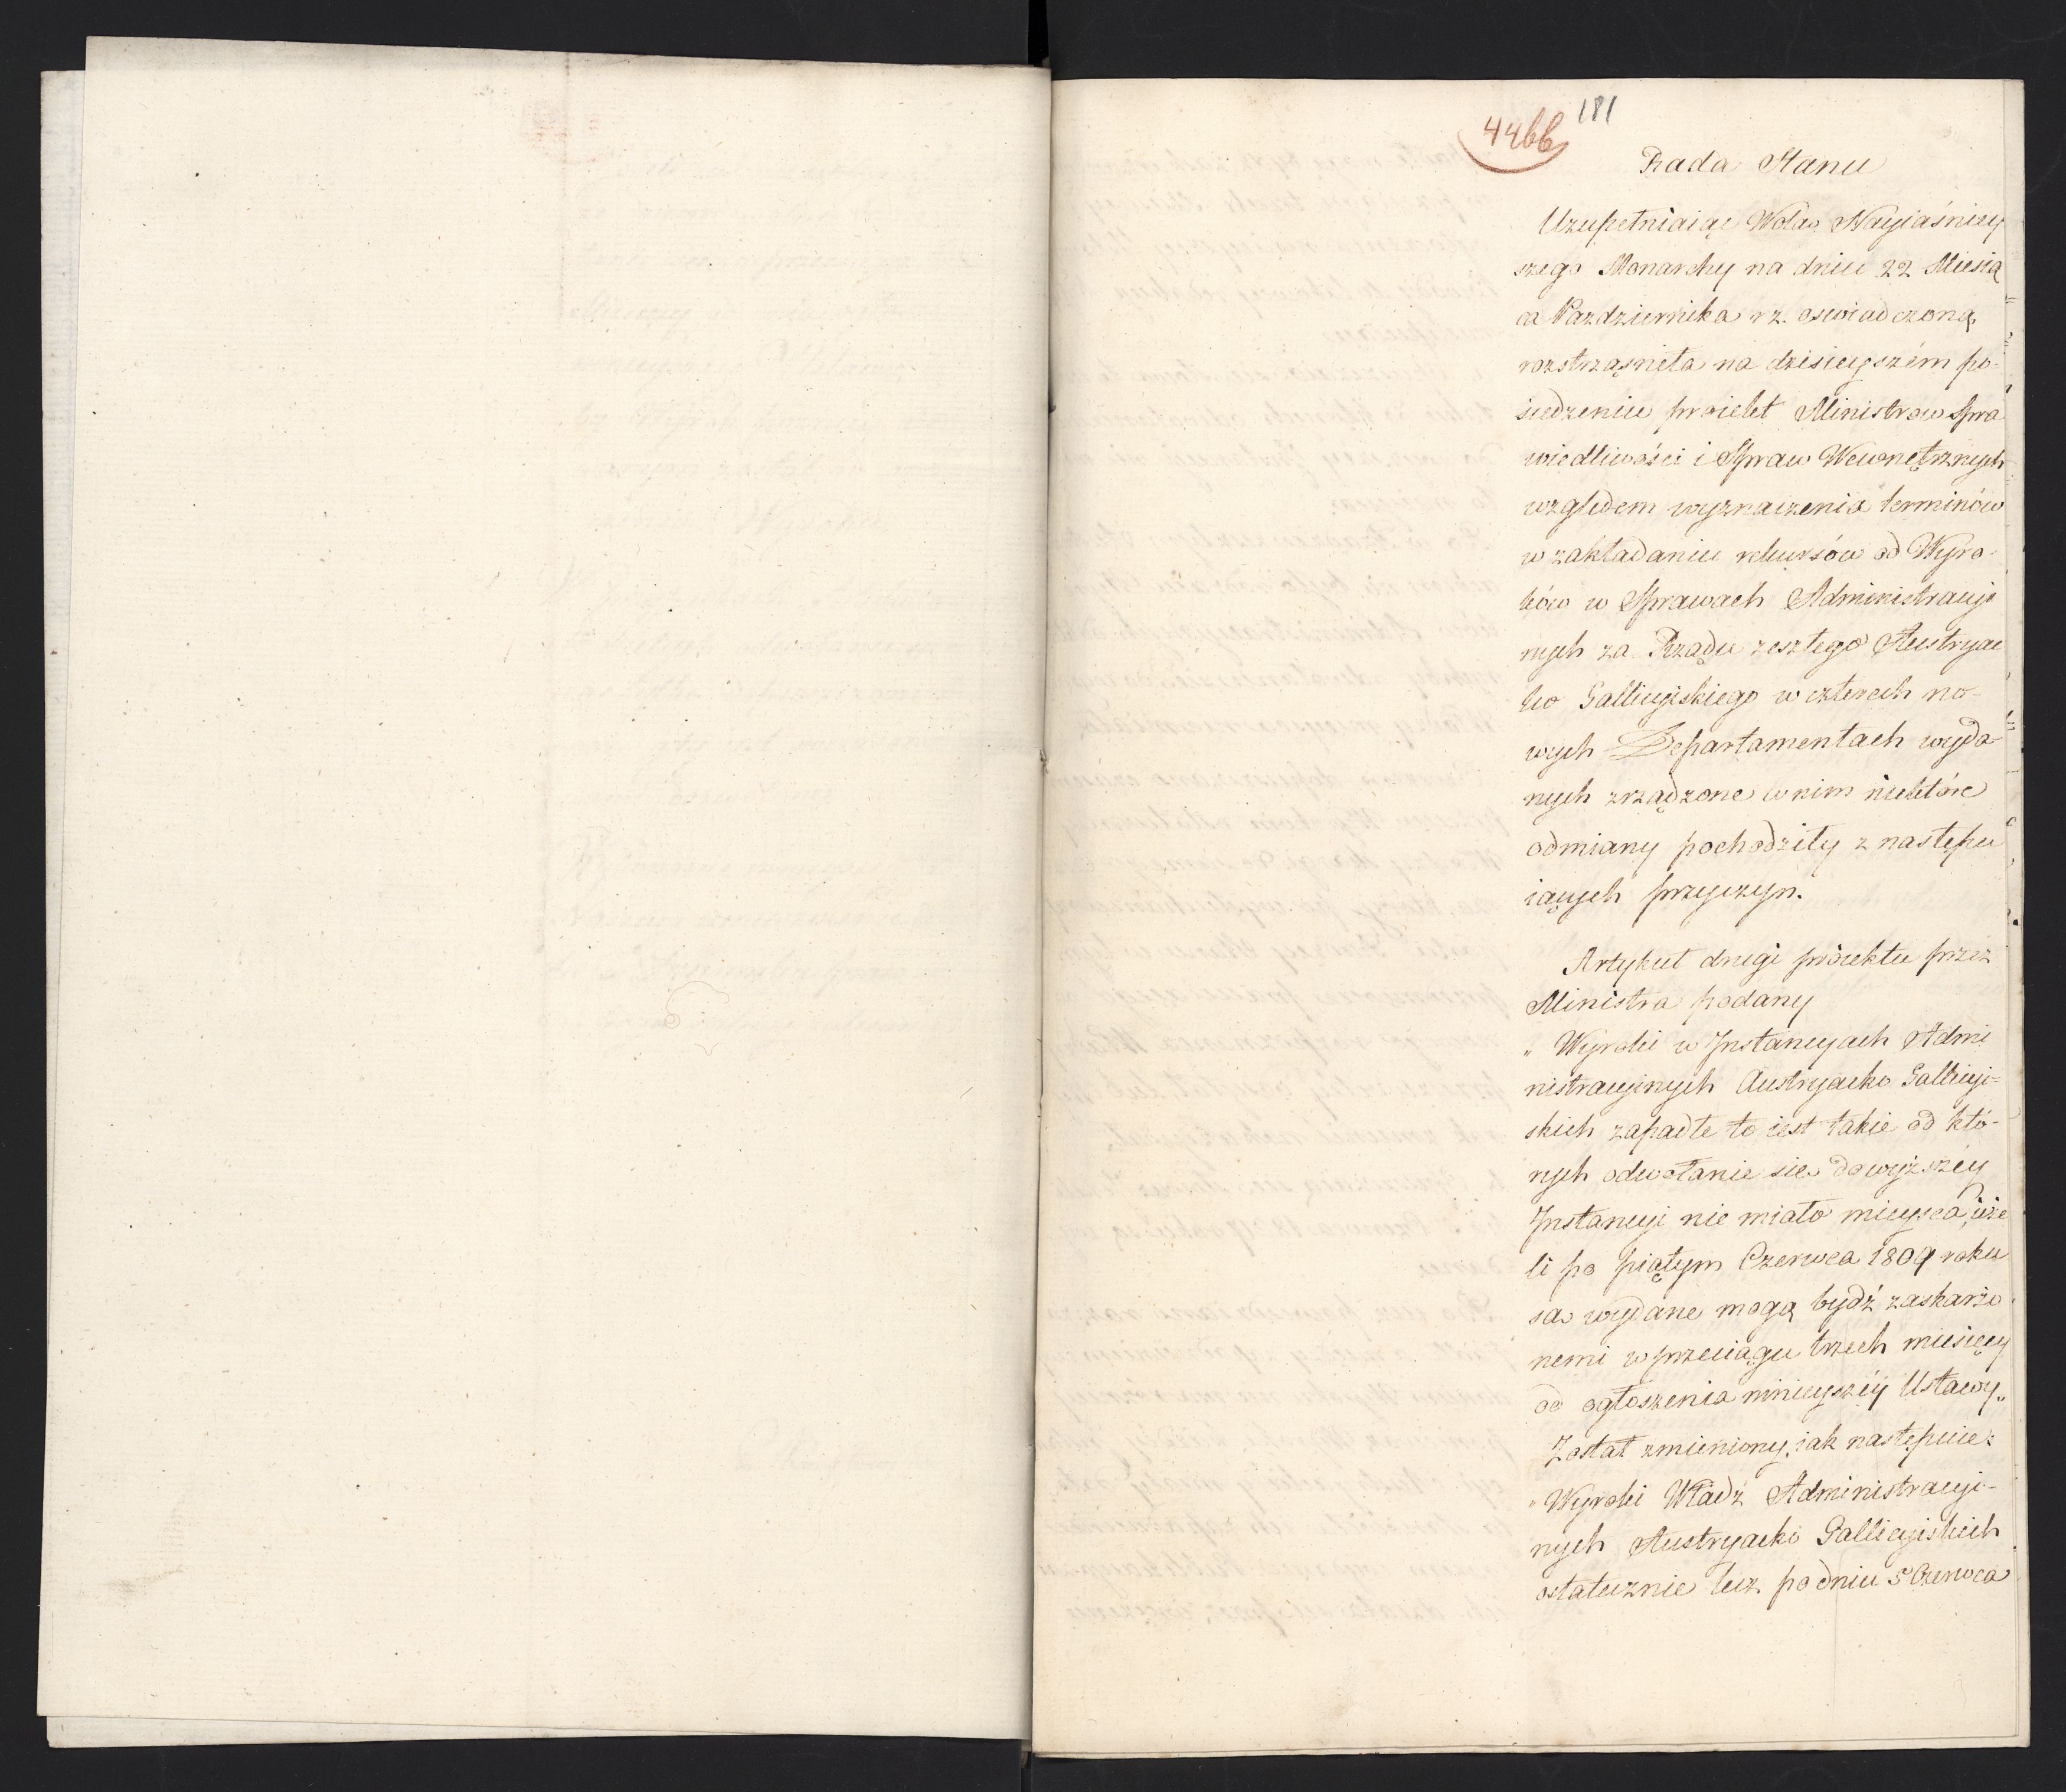 44bb 181
Rada Stanu
Uzupełniaiąc Wolą Nayiaśniey
szego Monarchy na dniu 22 Miesią
ca Pazdziernika r z. oswiadczoną,
roztrząsnęła na dzisieyszém po-
siedzeniu proiekt Ministrow Spra
wiedliwości i Spraw Wewnętrznych
względem wyznaczenia terminów
w zakładaniu rekursów od Wyro-
ków w Sprawach Administracyi
nych za Rządu zeszłego Austryac
ko Gallicyiskiego w czterech no-
wych Departamentach wyda-
nych zrządzone w nim niektóre
odmiany pochodziły z nastepu
iących przyczyn.
Artykuł drugi proiektu przez
Ministra podany
„ Wyroki w Instancyach Admi
nistracyinych Austryacko Gallicyi=
skich zapadłe to iest takie od któ-
rych odwołanie sie do wyższey
Instancyi nie miało mieysca, ieże
li po piątym Czerwca 1809 roku
są wydane mogą bydź zaskarżo
nemi w przeciągu trzech miesięcy
od ogłoszenia ninieyszéy Ustawy„
Został zmieniony, iak następuie:
„ Wyroki Władz Administracyi-
nych Austryacko Gallicyiskich
ostatecznie lecz po dniu 5 Czerwca